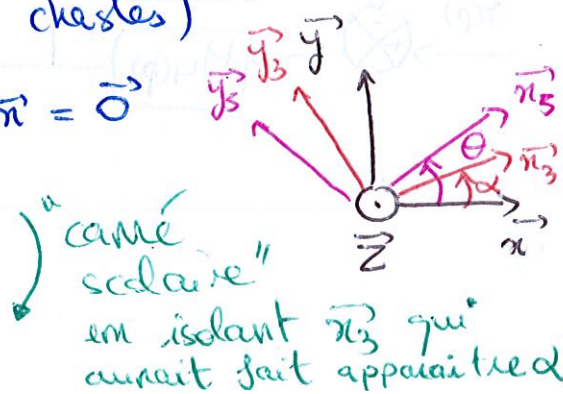 chasles)
$\vec{x} = \vec{0}$
$\vec{y_5}$ $\vec{y_3}$ $\vec{y}$ $\vec{x_5}$
θ $\vec{x_3}$
α
$\vec{z}$ $\vec{x}$
"carré
scalaire"
en isolant $\vec{x_3}$ qui
aurait fait apparaitre α